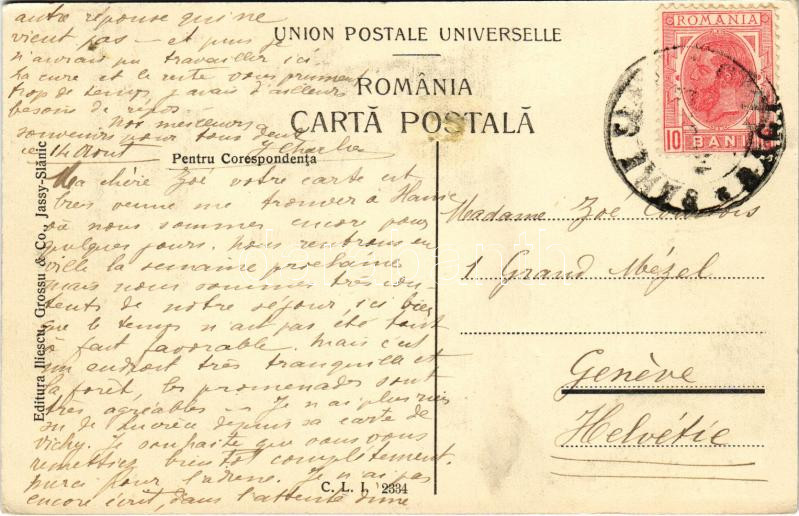 UNION POSTALE UNIVERSELLE
ROMÂNIA
CARTĂ POSTALĂ
Pentru Corespondența
ROMANIA
10 BANI
Editura Iliescu, Grossu & Co., Jassy-Slănic
C. L. I. 2334
Ma chère Zoé votre carte est
très venue me trouver à
où nous sommes encore pour
quelques jours. Nous rentrons en
ville la semaine prochaine
mais nous sommes très con-
tents de notre séjour, ici bien
que le temps n'ait pas été tout
à fait favorable. Mais c'est
un endroit très tranquille et
la forêt, les promenades sont
très agréables — Je n'ai plus rien
su de depuis sa carte de
Vichy. Je souhaite que vous vous
remettiez bientôt complètement.
Merci pour l'adresse. Je n'ai pas
encore écrit, dans l'attente d'une
autre réponse qui ne
vient pas — et puis je
n'aurais pu travailler ici.
La cure et le reste vous prennent
trop de temps, j'avais d'ailleurs
besoin de repos.
Nos meilleurs
souvenirs pour tous deux
ce 14 Août
Madame Zoé
1 Grand Mézel
Genève
Helvétie